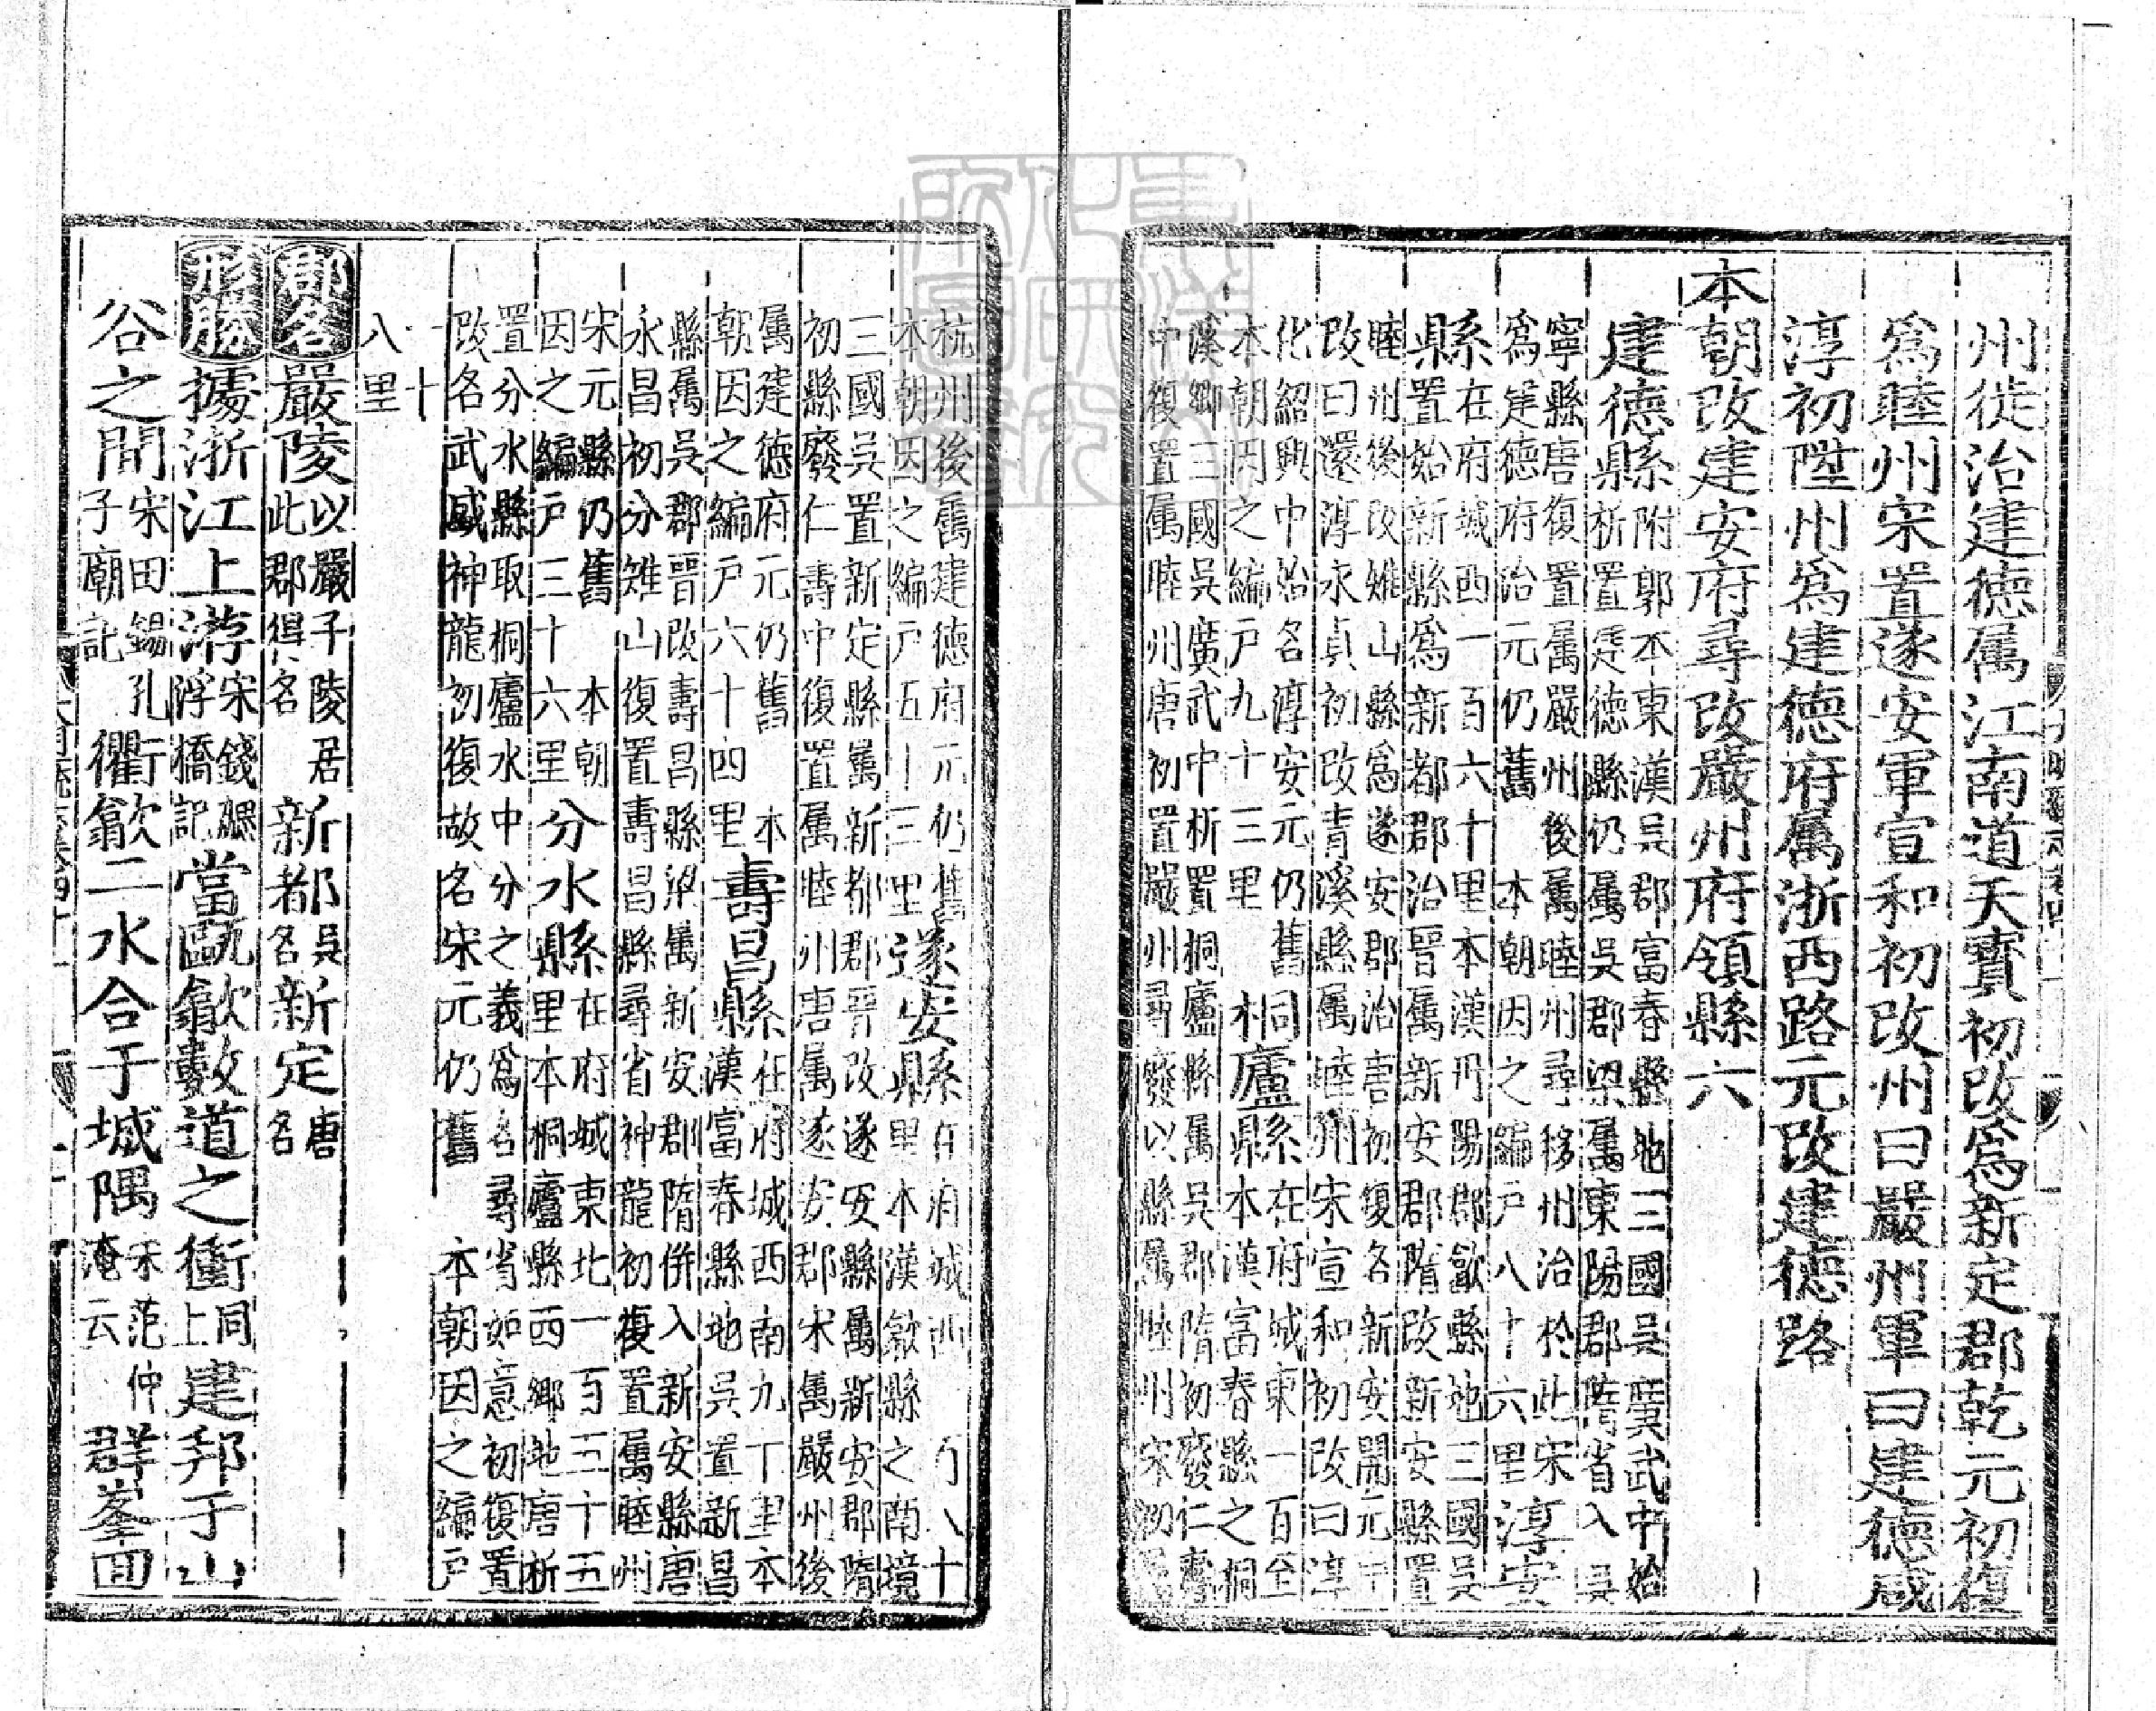 州徙治建德属江南道天寶初改爲新定郡乾元初復
爲睦州宋置遂安軍宣和初改州曰嚴州軍曰建德咸
淳初陞州爲建德府属浙西路元改建德路
本朝改建安府尋改嚴州府領縣六
建德縣
附郭本東漢吳郡富春縣地三國吳廣武中始
析置建德縣仍属吳郡梁属東陽郡隋省入吳
寧縣唐復置属嚴州後属睦州尋移州治於此宋
爲建德府治元仍舊 本朝因之編戶八十六里
淳安
縣
在府城西一百六十里本漢丹陽郡歙縣地三國吳
置始新縣爲新都郡治晉属新安郡隋改新安縣置
睦州後改雉山縣爲遂安郡治唐初復名新安開元中
改曰還淳永貞初改青溪縣属睦州宋宣和初改曰淳
化紹興中始名淳安元仍舊
本朝因之編戶九十三里
桐廬縣
在府城東一百
本漢富春縣之桐
溪鄉三國吳廣武中析置桐廬縣属吳郡隋初廢仁壽
中復置属睦州唐初置嚴州尋廢以縣属睦州宋初属
杭州後属建德府元仍舊
本朝因之編戶五十三里
遂安縣
在府城西一百八十
里本漢歙縣之南境
三國吳置新定縣属新都郡晉改遂安縣属新安郡隋
初縣廢仁壽中復置属睦州唐属遂安郡宋属嚴州後
属建德府元仍舊 本
朝因之編戶六十四里
壽昌縣
在府城西南九十里本
漢富春縣地吳置新昌
縣属吳郡晉改壽昌縣梁属新安郡隋併入新安縣唐
永昌初分雉山復置壽昌縣尋省神龍初復置属睦州
宋元縣仍舊 本朝
因之編戶三十六里
分水縣
在府城東北一百三十五
里本桐廬縣西鄉地唐析
置分水縣取桐廬水中分之義爲名尋省如意初復置
改名武盛神龍初復故名宋元仍舊 本朝因之編戶
十
八里
郡名 嚴陵
以嚴子陵居
此郡得名
新都 吳名 新定 唐名
形勝 據浙江上游
宋錢勰
浮橋記
當甌歙數道之衝 同上 建邦于山
谷之間
宋田錫孔
子廟記
衢歙二水合于城隅
宋范仲
淹云
群峯回